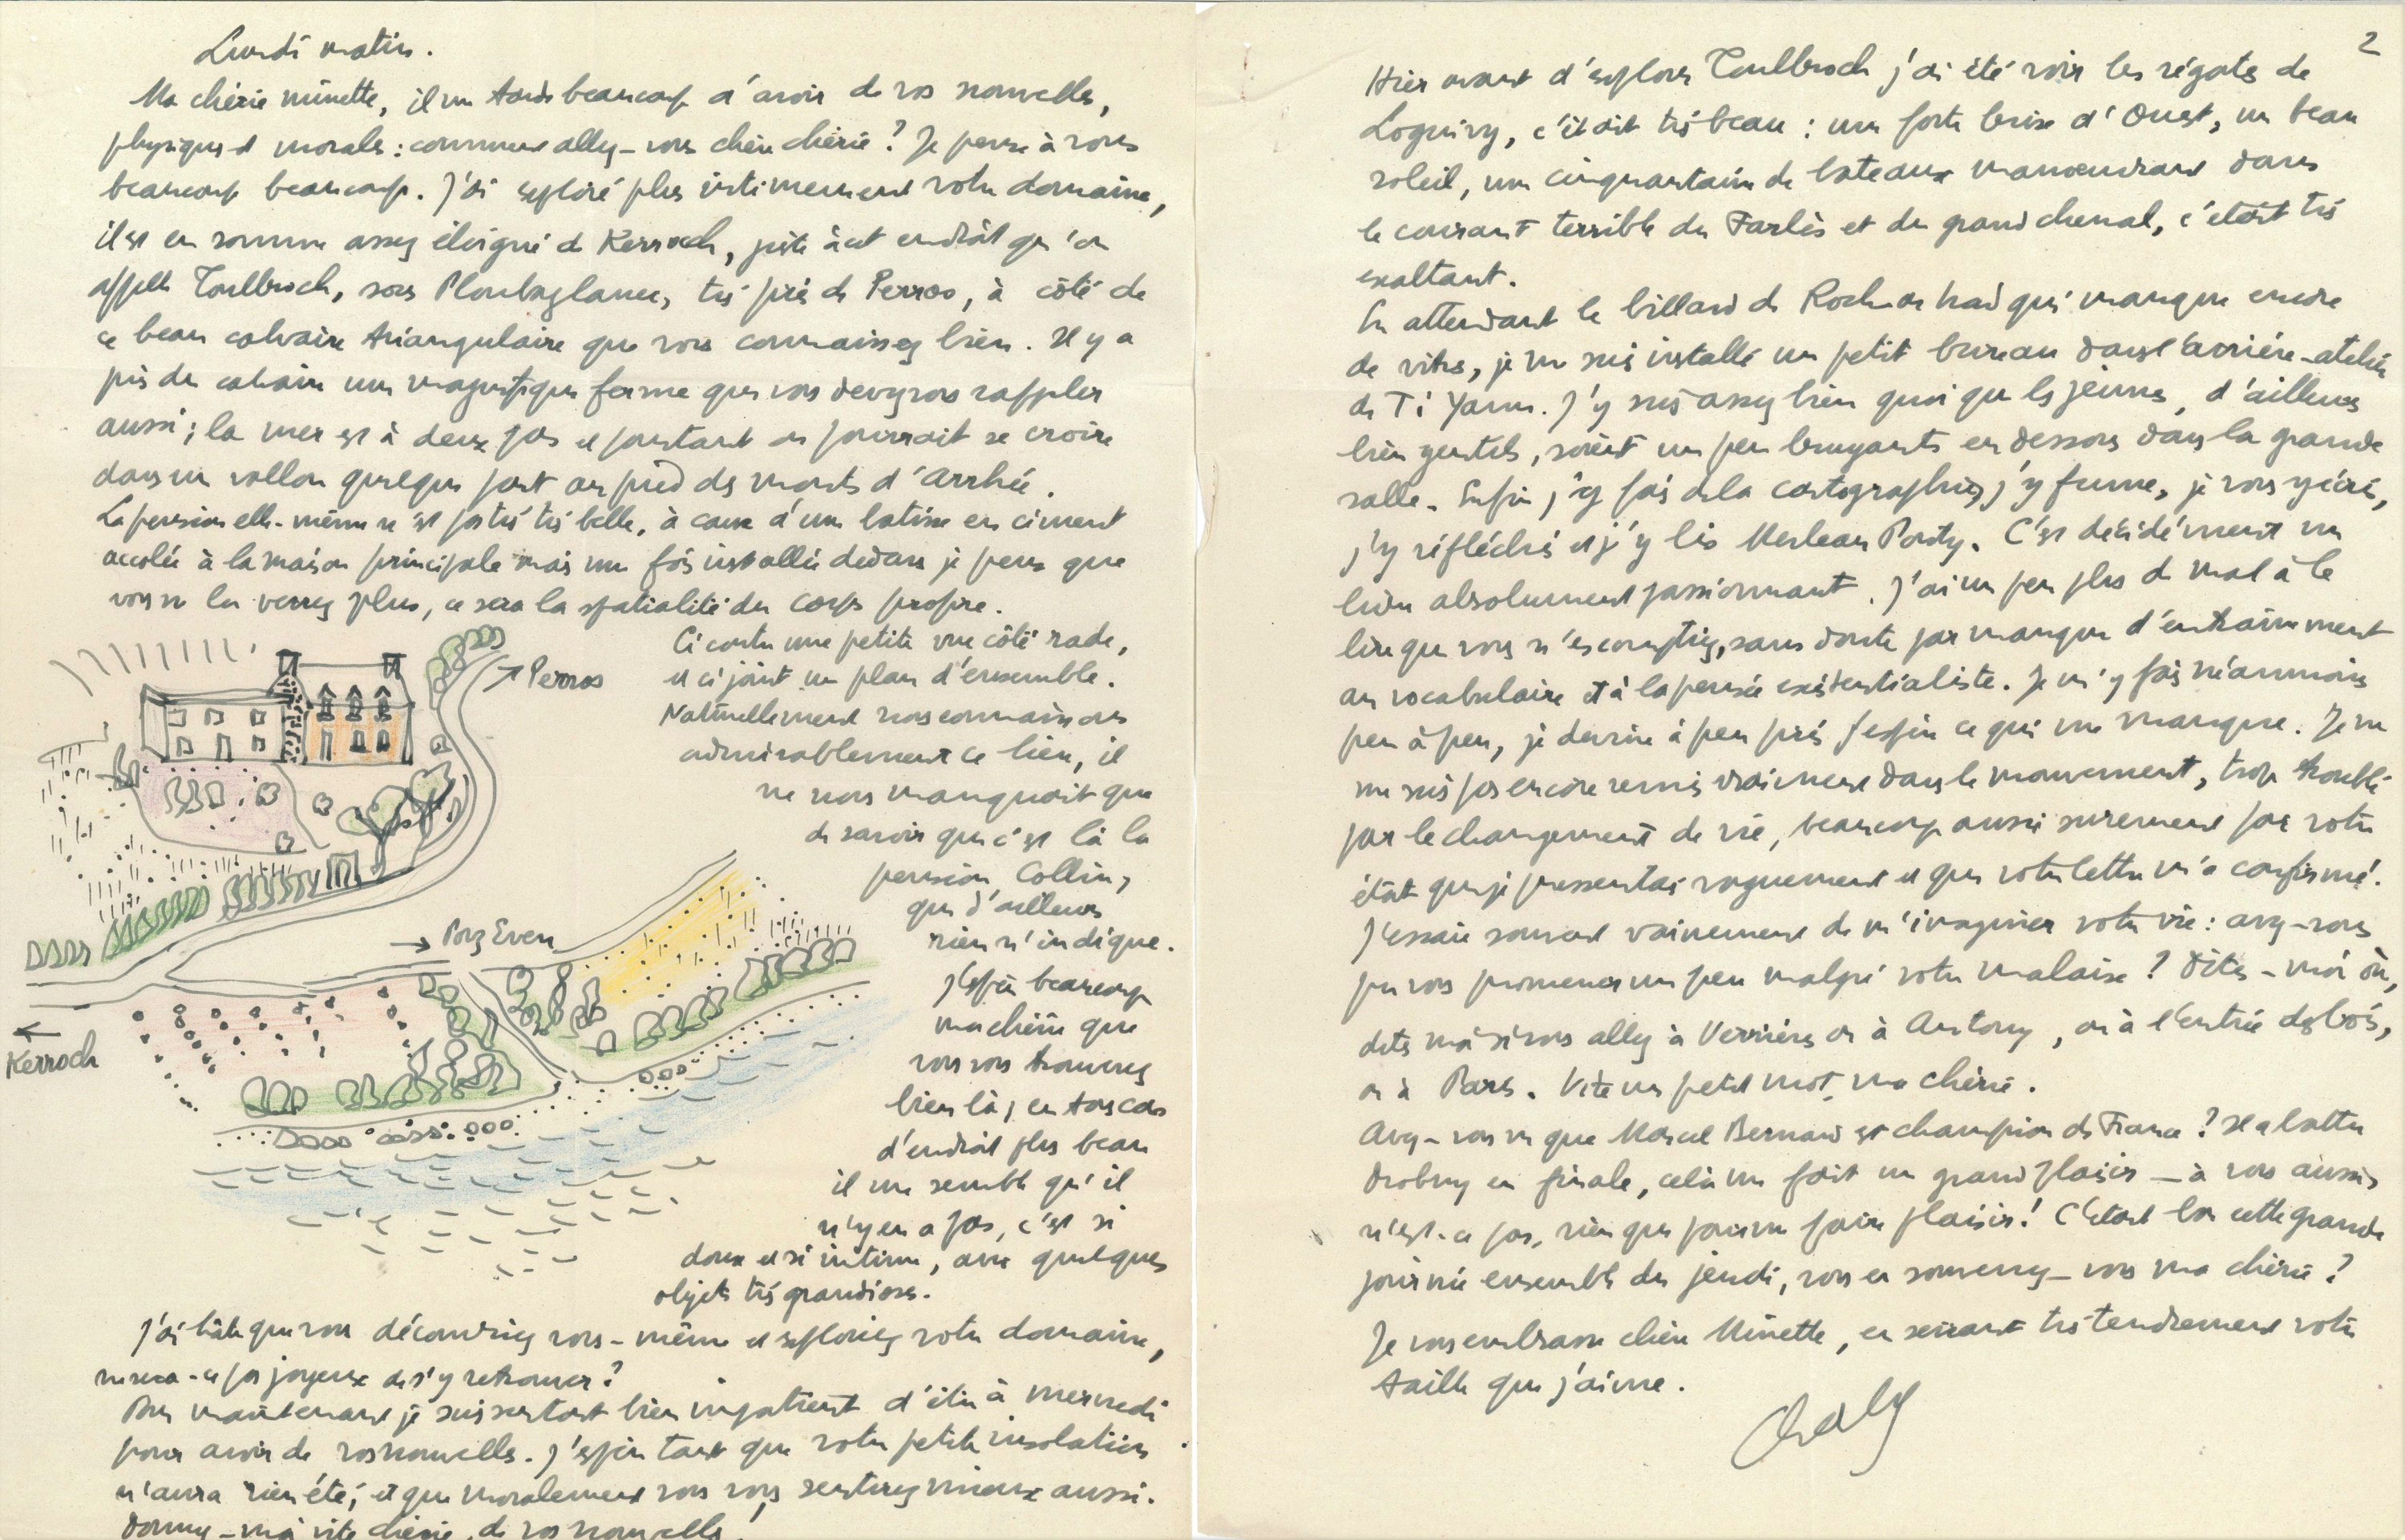 Lundi matin.
Ma chérie minette, il me tarde beaucoup d'avoir de vos nouvelles,
physiques et morales : comment allez-vous chère chérie ? Je pense à vous
beaucoup beaucoup. J'ai exploré plus intimement votre domaine,
il est en somme assez éloigné de Kerroch, juste à cet endroit qu'on
appelle Toulbroch, sous Ploubazlanec, très près de Perros, à côté de
ce beau calvaire triangulaire que vous connaissez bien. Il y a
près du calvaire une magnifique ferme que vous devez vous rappeler
aussi ; la mer est à deux pas et pourtant on pourrait se croire
dans un vallon quelque part au pied des monts d'Arrhée.
La pension elle-même n'est pas très très belle, à cause d'une bâtisse en ciment
accolée à la maison principale mais une fois installée dedans je pense que
vous ne la verrez plus, ce sera la spatialité du corps propre.
Ci contre une petite vue côté rade,
et ci joint un plan d'ensemble.
Naturellement nous connaissons
admirablement ce lieu, il
ne nous manquait que
de savoir que c'est là la
pension Collin,
que d'ailleurs
rien n'indique.
J'espère beaucoup
ma chérie que
vous vous trouverez
bien là, en tous cas
d'endroit plus beau
il me semble qu'il
n'y en a pas, c'est si
doux et si intime, avec quelques
objets très grandioses.
→ Perros
→ Porz Even
← Kerroch
J'ai hâte que vous découvriez vous-même et exploriez votre domaine,
ne sera-ce pas joyeux de s'y retrouver ?
Mais maintenant je suis surtout bien impatient d'être à mercredi
pour avoir de vos nouvelles. J'espère tant que votre petite insolation
n'aura rien été, et que moralement vous vous sentirez mieux aussi.
Donnez-moi vite chérie, de vos nouvelles !
2
Hier avant d'explorer Toulbroch j'ai été voir les régates de
Loguivy, c'était très beau : une forte brise d'Ouest, un beau
soleil, une cinquantaine de bateaux manoeuvrant dans
le courant terrible du Farlès et du grand chenal, c'était très
exaltant.
En attendant le billard de Roch ar had qui manque encore
de vitres, je me suis installé un petit bureau dans l'arrière-atelier
de Ti Yann. J'y suis assez bien quoi que les jeunes, d'ailleurs
bien gentils, soient un peu bruyants en dessous dans la grande
salle. Enfin j'y fais de la cartographie, j'y fume, je vous y écris,
j'y réfléchis et j'y lis Merleau Ponty. C'est décidément un
livre absolument passionnant. J'ai un peu plus de mal à le
lire que vous n'escomptiez, sans doute par manque d'entraînement
au vocabulaire et à la pensée existentialiste. Je m'y fais néanmoins
peu à peu, je devine à peu près j'espère ce qui me manque. Je ne
me suis pas encore remis vraiment dans le mouvement, trop troublé
par le changement de vie, beaucoup aussi surement par votre
état que je pressentais vaguement et que votre lettre m'a confirmé.
J'essaie souvent vainement de m'imaginer votre vie : avez-vous
pu vous promener un peu malgré votre malaise ? Dites-moi où,
dites moi si vous allez à Verrières ou à Antony, ou à l'entrée des bois,
ou à Paris. Vite un petit mot, ma chérie.
Avez-vous vu que Marcel Bernard est champion de France ? Il a battu
Drobny en finale, cela me fait un grand plaisir — à vous aussi
n'est-ce pas, rien que pour me faire plaisir ! C'était bon cette grande
journée ensemble du jeudi, vous en souvenez-vous ma chérie ?
Je vous embrasse chère Minette, en serrant très tendrement votre
taille que j'aime.